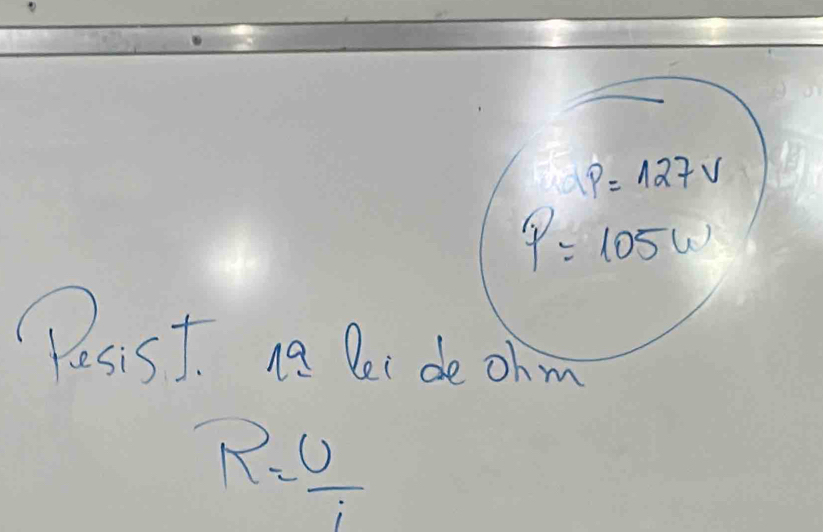 ddp = 127 V
P = 105 W
Resist. 1ª lei de ohm
R = U/i